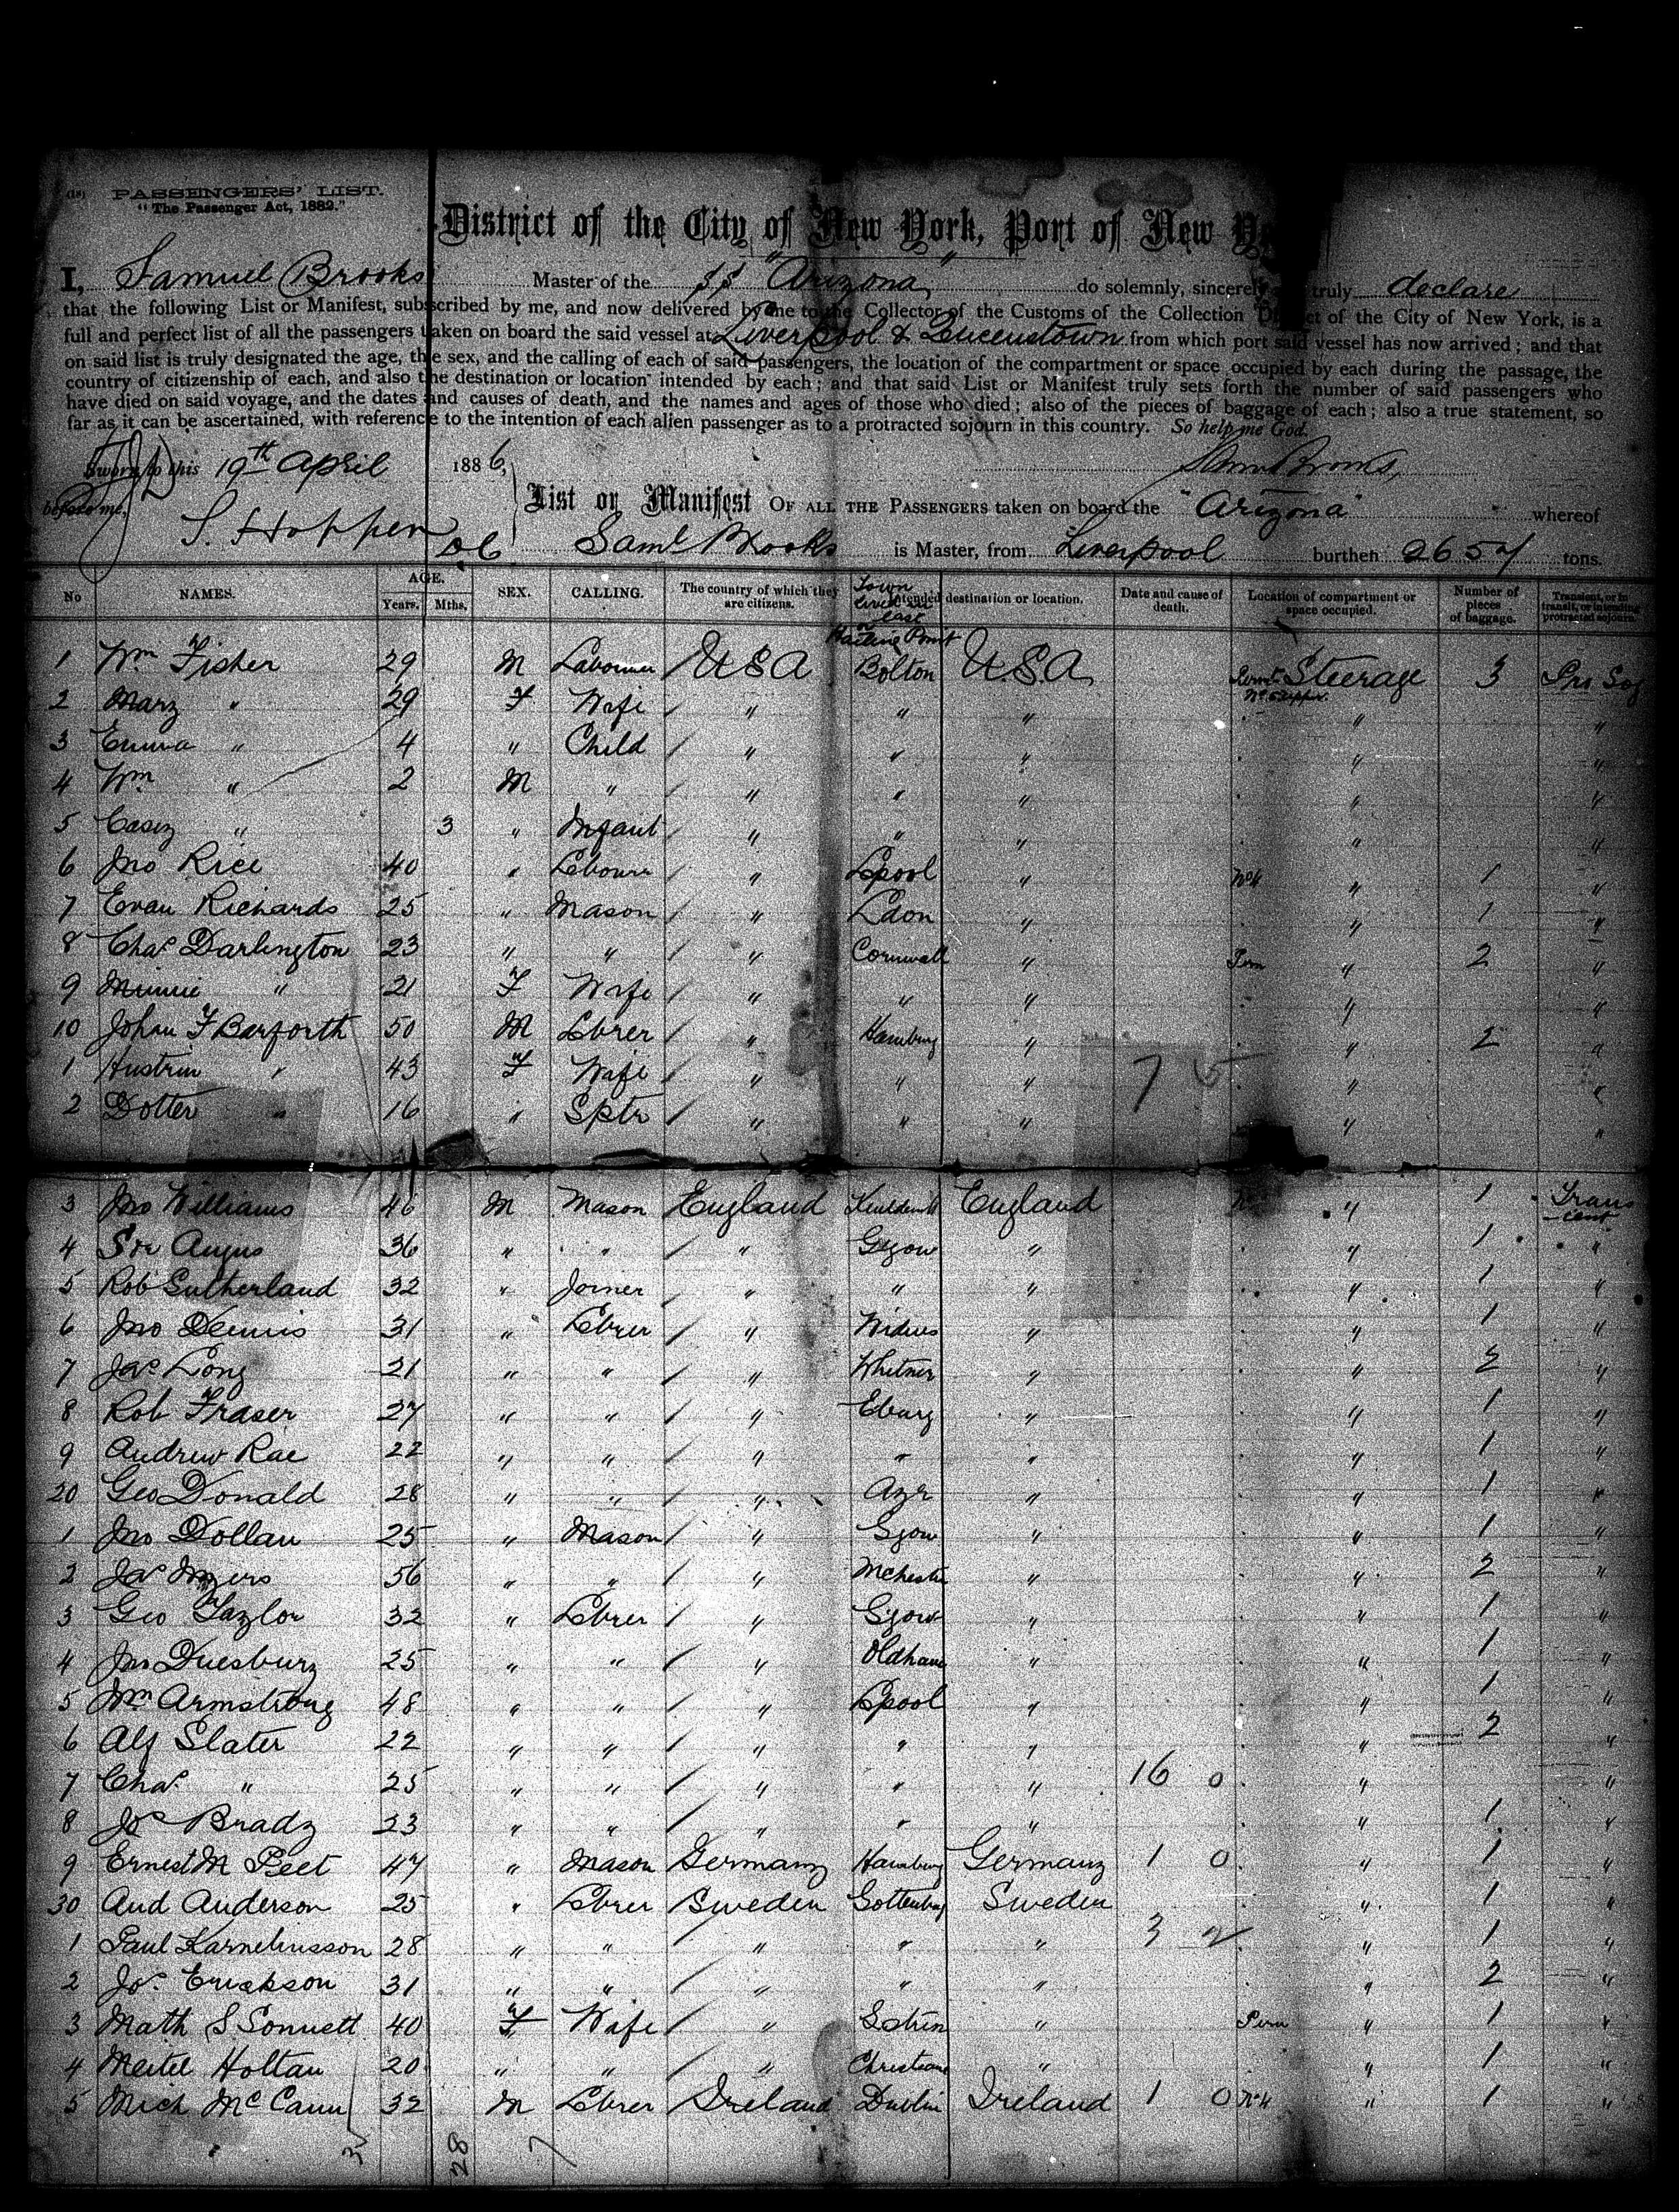 (18) PASSENGERS' LIST.
"The Passenger Act, 1882."
District of the City of New York, Port of New Yo
I, Samuel Brooks Master of the SS "Arizona" do solemnly, sincerely truly declare
that the following List or Manifest, subscribed by me, and now delivered by me to the Collector of the Customs of the Collection District of the City of New York, is a
full and perfect list of all the passengers taken on board the said vessel at Liverpool & Queenstown from which port said vessel has now arrived; and that
on said list is truly designated the age, the sex, and the calling of each of said passengers, the location of the compartment or space occupied by each during the passage, the
country of citizenship of each, and also the destination or location intended by each; and that said List or Manifest truly sets forth the number of said passengers who
have died on said voyage, and the dates and causes of death, and the names and ages of those who died; also of the pieces of baggage of each; also a true statement, so
far as it can be ascertained, with reference to the intention of each alien passenger as to a protracted sojourn in this country. So help me God.
Sworn to this 19th April 1886, Saml Brooks,
before me, List or Manifest OF ALL THE PASSENGERS taken on board the "Arizona" whereof
S. Hopper Saml Brooks is Master, from Liverpool burthen 2657 tons.
No NAMES. AGE. Years. Mths. SEX. CALLING. The country of which they are citizens. Town lived in last Intended destination or location. Date and cause of death. Location of compartment or space occupied. Number of pieces of baggage. Transient, or in transit, or intending protracted sojourn.
1 Wm Fisher 29 M Labourer USA Bolton U.S.A. Steerage 3 Pro Soj
2 Mary " 29 F Wife " " " " "
3 Emma " 4 " Child " " " " "
4 Wm " 2 M " " " " " "
5 Casey " 3 " Infant " " " " "
6 Jno Rice 40 " Labourer " Lpool " No4 " 1 "
7 Evan Richards 25 " Mason " Ldon " " 1 "
8 Chas Darlington 23 " " " Cornwall " " 2 "
9 Minnie " 21 F Wife " " " " "
10 Johan F Barforth 50 M Lbrer " Hamburg " " 2 "
1 " 43 F Wife " " " " "
2 Dotter " 16 " Sptr " " " " "
7 5
3 Jno Williams 46 M Mason England England " 1 Transcent
4 Angus 36 " " " Ggow " " 1 "
5 Rob Sutherland 32 " Joiner " " " " 1 "
6 Jno Dennis 31 " Lbrer " Widnes " " 1 "
7 Jas Long 21 " " " " " 2 "
8 Rob Fraser 27 " " " Eburg " " 1 "
9 Andrew Rae 22 " " " " " " 1 "
20 Geo Donald 28 " " " Ayr " " 1 "
1 Jno Dollan 25 " Mason " Ggow " " 1 "
2 Jas Myers 56 " " " Mchester " " 2 "
3 Geo Taylor 32 " Lbrer " Ggow " " 1 "
4 Jno Duesbury 25 " " " Oldham " " 1 "
5 Wm Armstrong 48 " " " Lpool " " 1 "
6 Alf Slater 22 " " " " " " 2 "
7 Chas " 25 " " " " " 16 0 " "
8 Jos Brady 23 " " " " " " 1 "
9 Ernest M Peet 47 " Mason Germany Hamburg Germany 1 0 " 1 "
30 And Anderson 25 " Lbrer Sweden Gottenburg Sweden " 1 "
1 Paul Karneliusson 28 " " " " " 3 2 " 1 "
2 Jos. Erickson 31 " " " " " " 2 "
3 Math S Sonnett 40 F Wife " " " 1 "
4 Holtan 20 " " " Christiana " " 1 "
5 Mich McCann 32 M Lbrer Ireland Dublin Ireland 1 0 No4 " 1 "
28 7